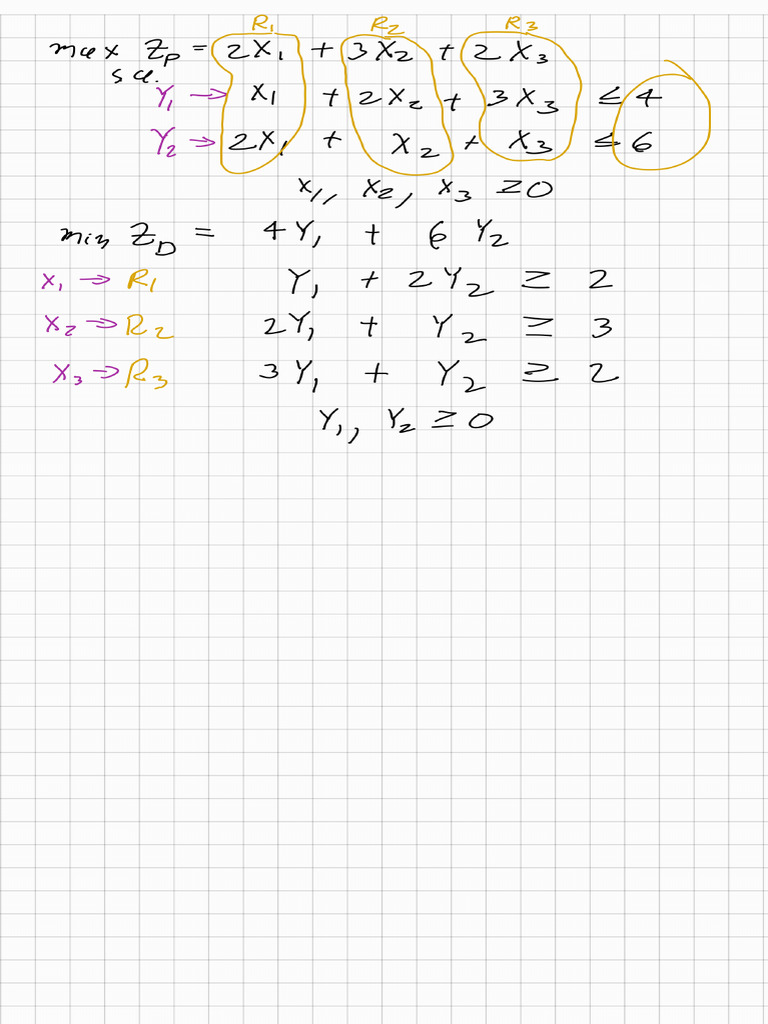 R₁ R₂ R₃
max Z_P = 2X₁ + 3X₂ + 2X₃
s.a.
Y₁ → X₁ + 2X₂ + 3X₃ ≤ 4
Y₂ → 2X₁ + X₂ + X₃ ≤ 6
X₁, X₂, X₃ ≥ 0
min Z_D = 4Y₁ + 6Y₂
X₁ → R₁ Y₁ + 2Y₂ ≥ 2
X₂ → R₂ 2Y₁ + Y₂ ≥ 3
X₃ → R₃ 3Y₁ + Y₂ ≥ 2
Y₁, Y₂ ≥ 0